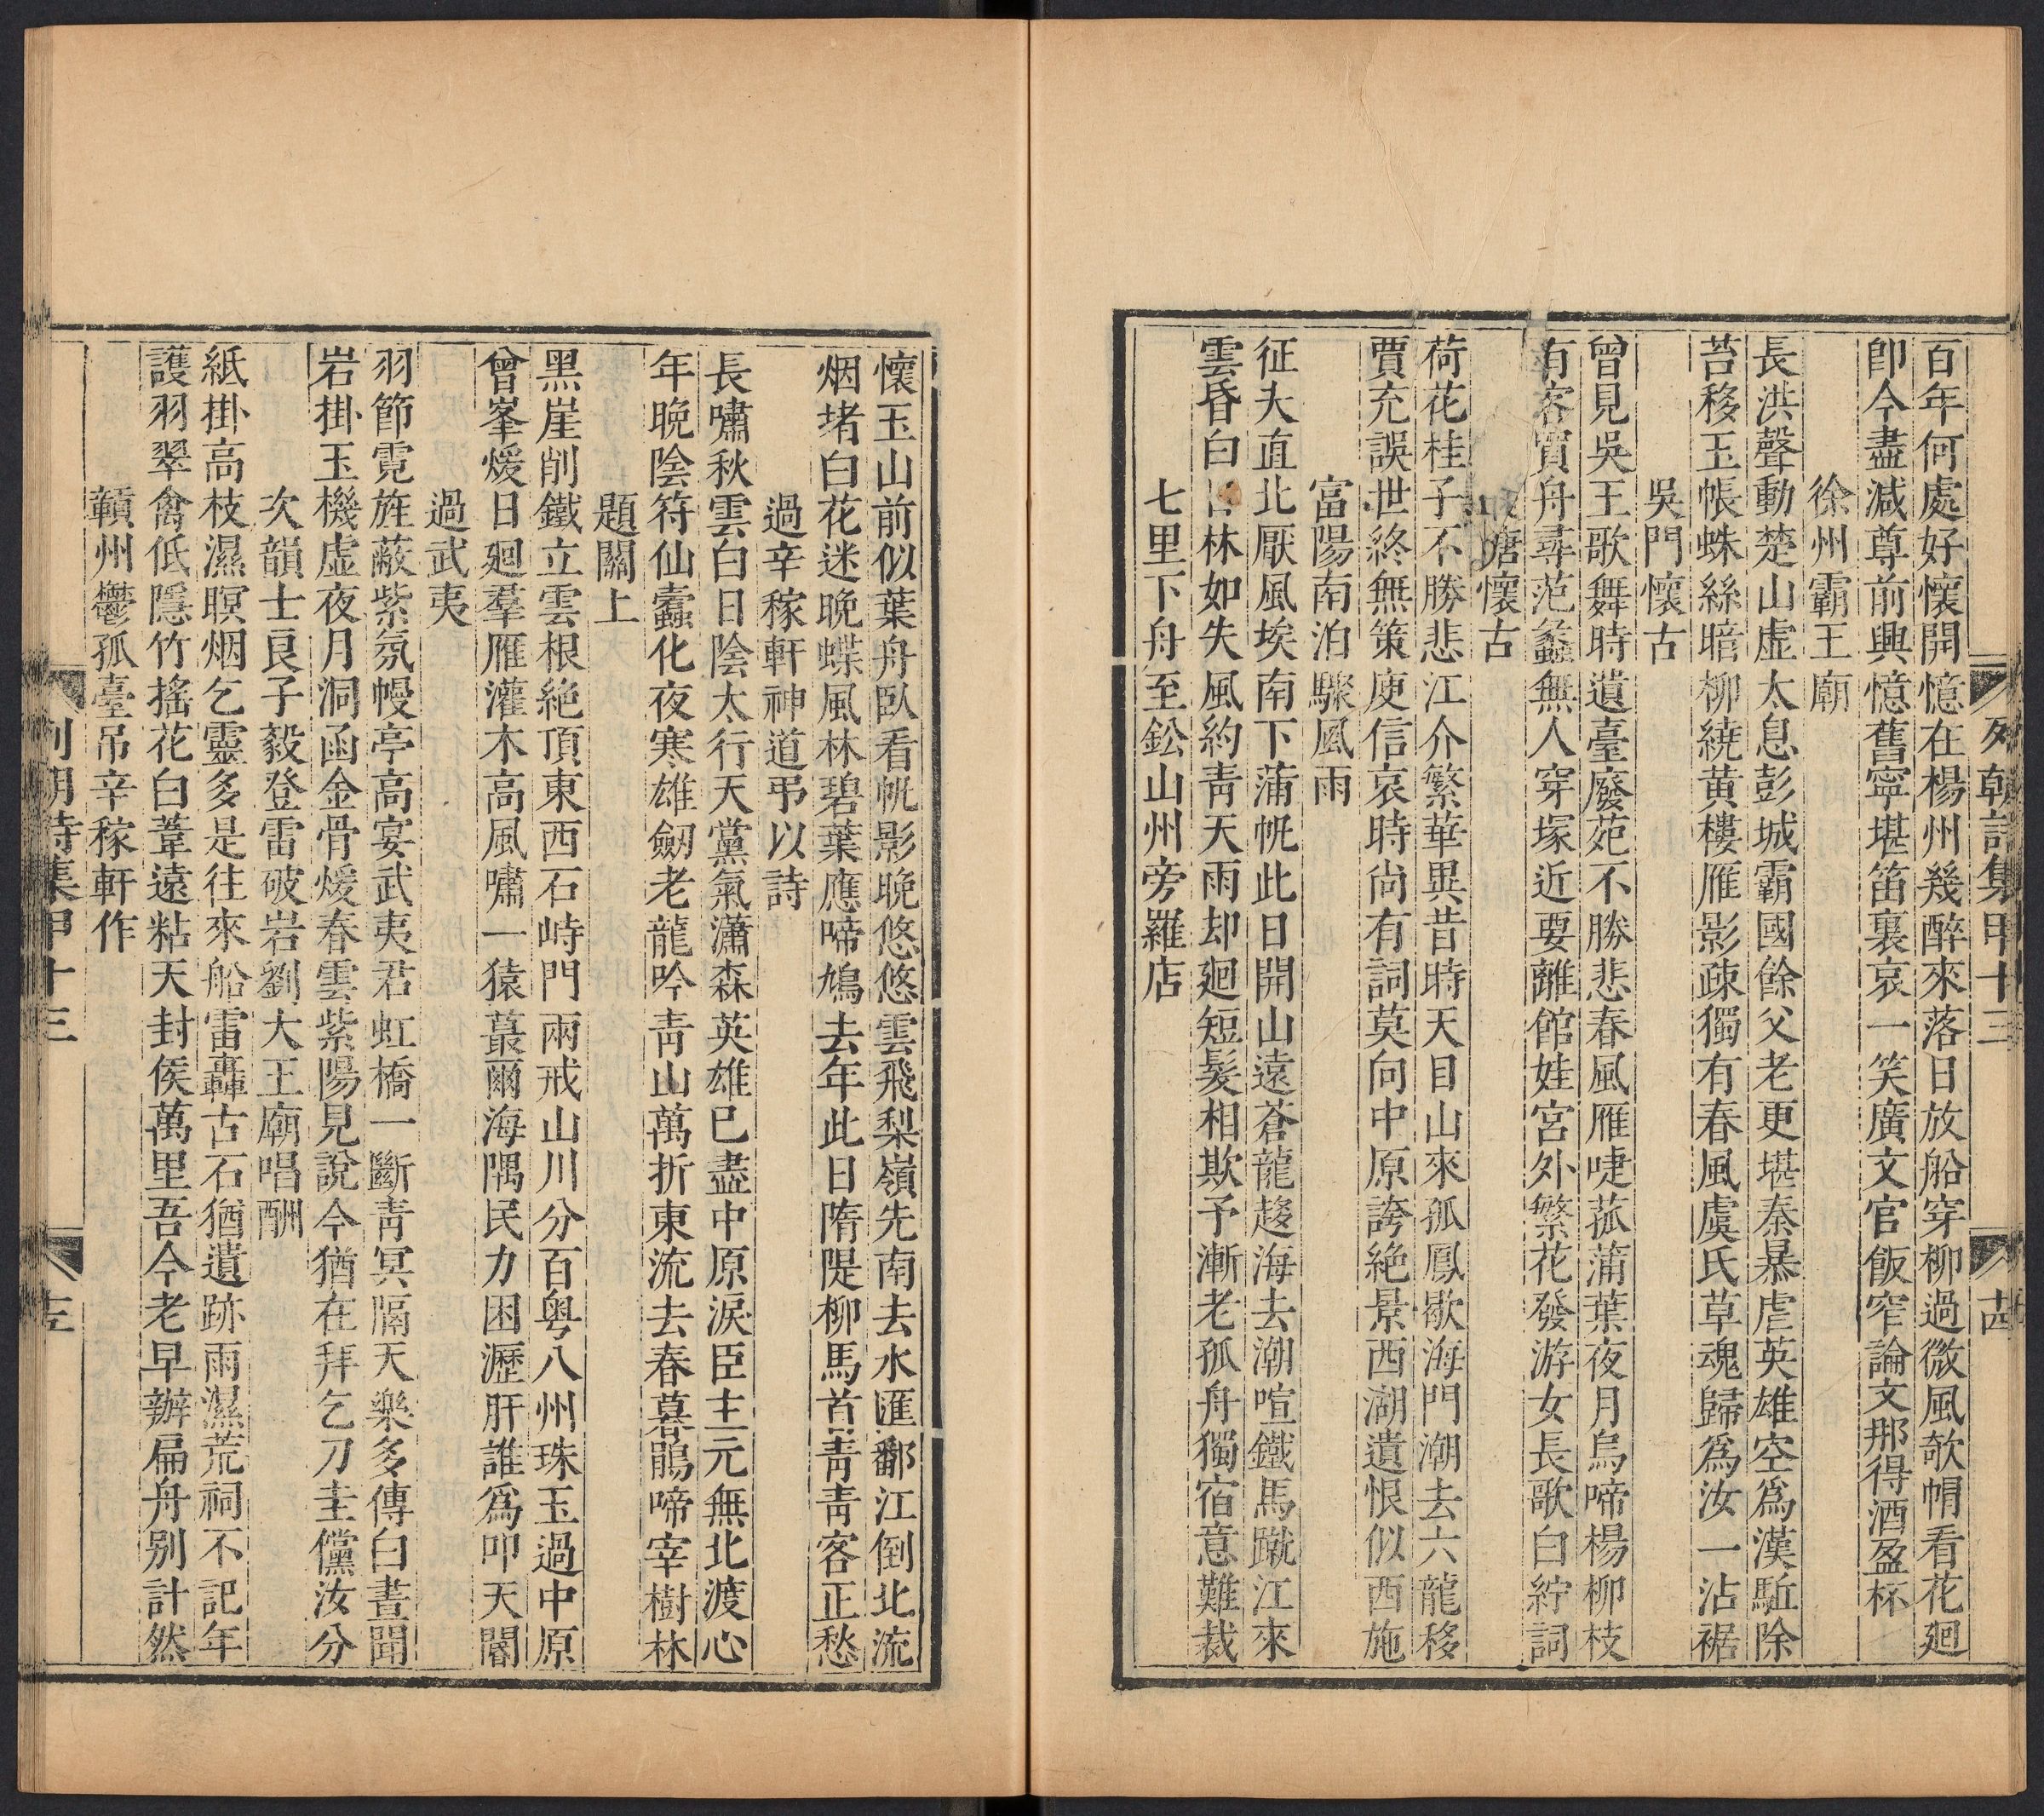 百年何處好懷開憶在楊州幾醉來落日放船穿柳過微風欹帽看花廻
卽今盡減尊前興憶舊寧堪笛裏哀一笑廣文官飯窄論文那得酒盈杯
徐州霸王廟
長洪聲動楚山虛太息彭城霸國餘父老更堪秦暴虐英雄空爲漢駈除
苔移玉帳蛛絲暗柳繞黄樓雁影疎獨有春風虞氏草魂歸爲汝一沾裾
吳門懷古
曾見吳王歌舞時遺臺廢苑不勝悲春風雁唼菰蒲葉夜月烏啼楊柳枝
有客買舟尋范蠡無人穿塚近要離館娃宮外繁花發游女長歌白紵詞
塘懷古
荷花桂子不勝悲江介繁華異昔時天目山來孤鳳歇海門潮去六龍移
賈充誤世終無策庾信哀時尙有詞莫向中原誇絶景西湖遺恨似西施
富陽南泊驟風雨
征夫直北厭風埃南下蒲帆此日開山遠蒼龍趍海去潮喧鐵馬蹴江來
雲昏白日林如失風約靑天雨却廻短髮相欺予漸老孤舟獨宿意難裁
七里下舟至鈆山州旁羅店
列朝詩集甲十三
十四
懷玉山前似葉舟臥看帆影晚悠悠雲飛梨嶺先南去水匯鄱江倒北流
烟堵白花迷晚蝶風林碧葉應啼鳩去年此日隋隄柳馬首靑靑客正愁
過辛稼軒神道弔以詩
長嘯秋雲白日陰太行天黨氣瀟森英雄已盡中原淚臣主元無北渡心
年晚陰符仙蠹化夜寒雄劒老龍吟靑山萬折東流去春暮鵑啼宰樹林
題關上
黑崖削鐵立雲根絶頂東西石峙門兩戒山川分百粤八州珠玉過中原
曾峯煖日廻羣雁灌木高風嘯一猿蕞爾海隅民力困瀝肝誰爲叩天閽
過武夷
羽節霓旌蔽紫氛幔亭高宴武夷君虹橋一斷靑冥隔天樂多傳白晝聞
岩掛玉機虛夜月洞函金骨煖春雲紫陽見說今猶在拜乞刀圭儻汝分
次韻士良子毅登雷破岩劉大王廟唱酬
紙掛高枝濕暝烟乞靈多是往來船雷轟古石猶遺跡雨濕荒祠不記年
護羽翠禽低隱竹搖花白葦遠粘天封侯萬里吾今老早辦扁舟别計然
贛州鬱孤臺吊辛稼軒作
列朝詩集甲十三